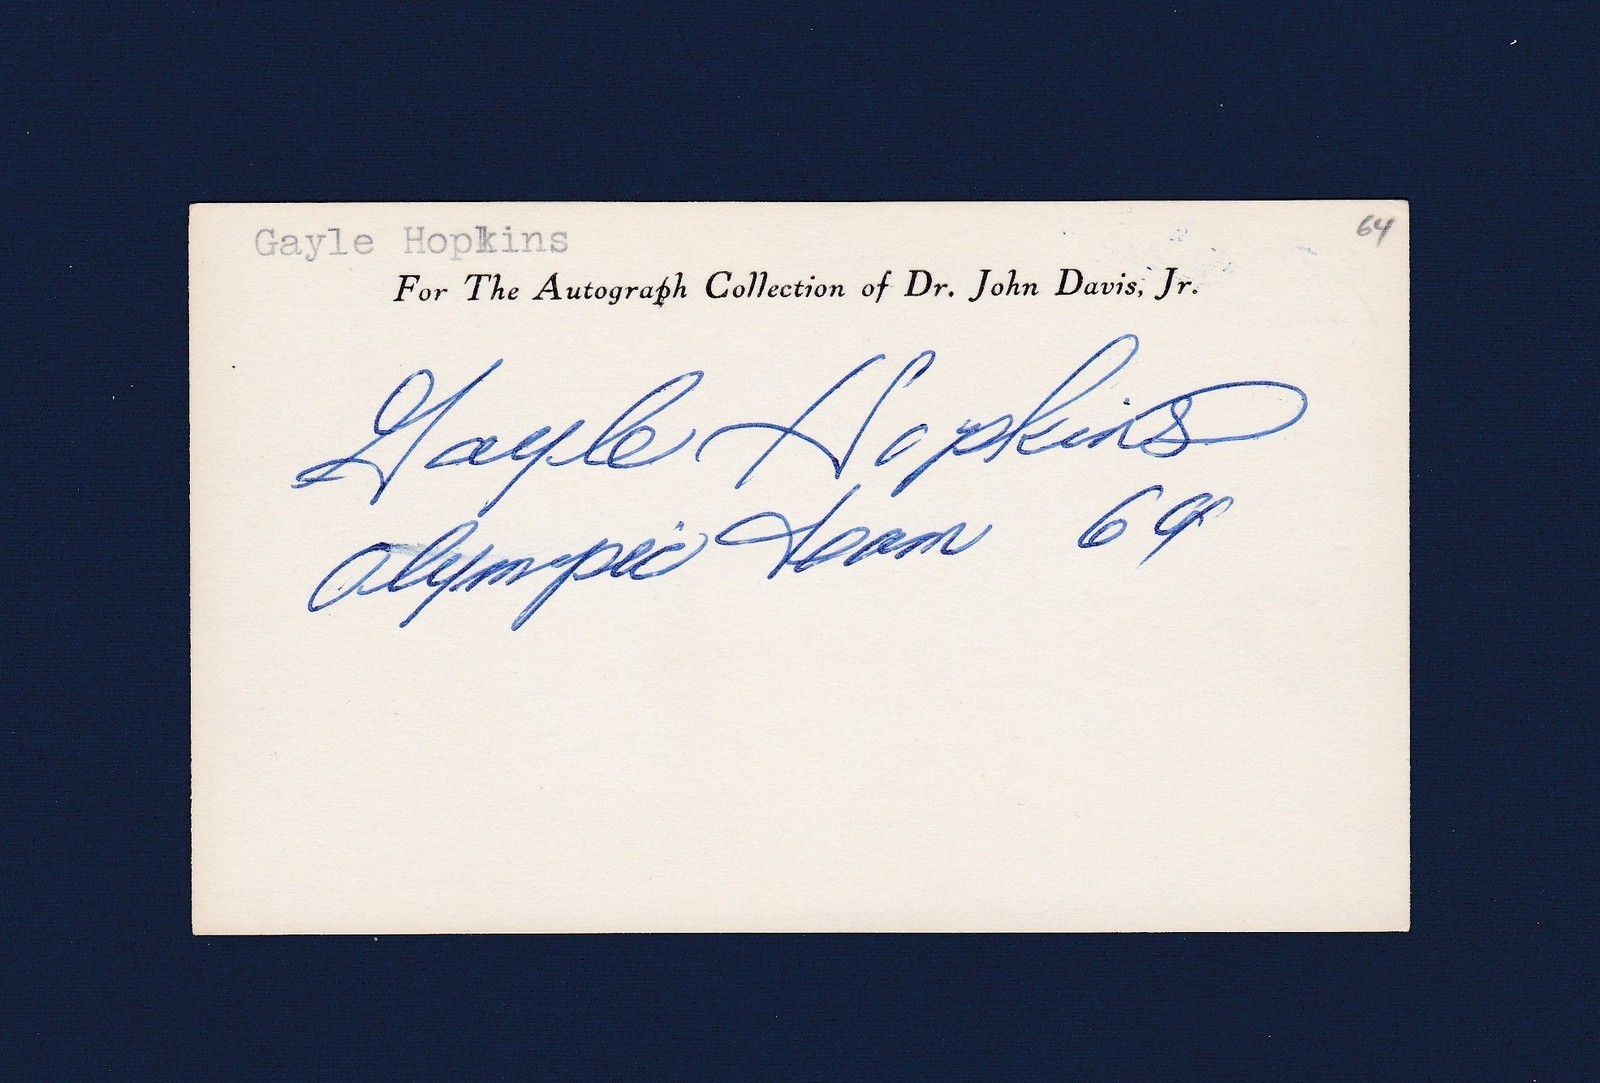 Gayle Hopkins
64
For The Autograph Collection of Dr. John Davis, Jr.
Gayle Hopkins
Olympic team 64